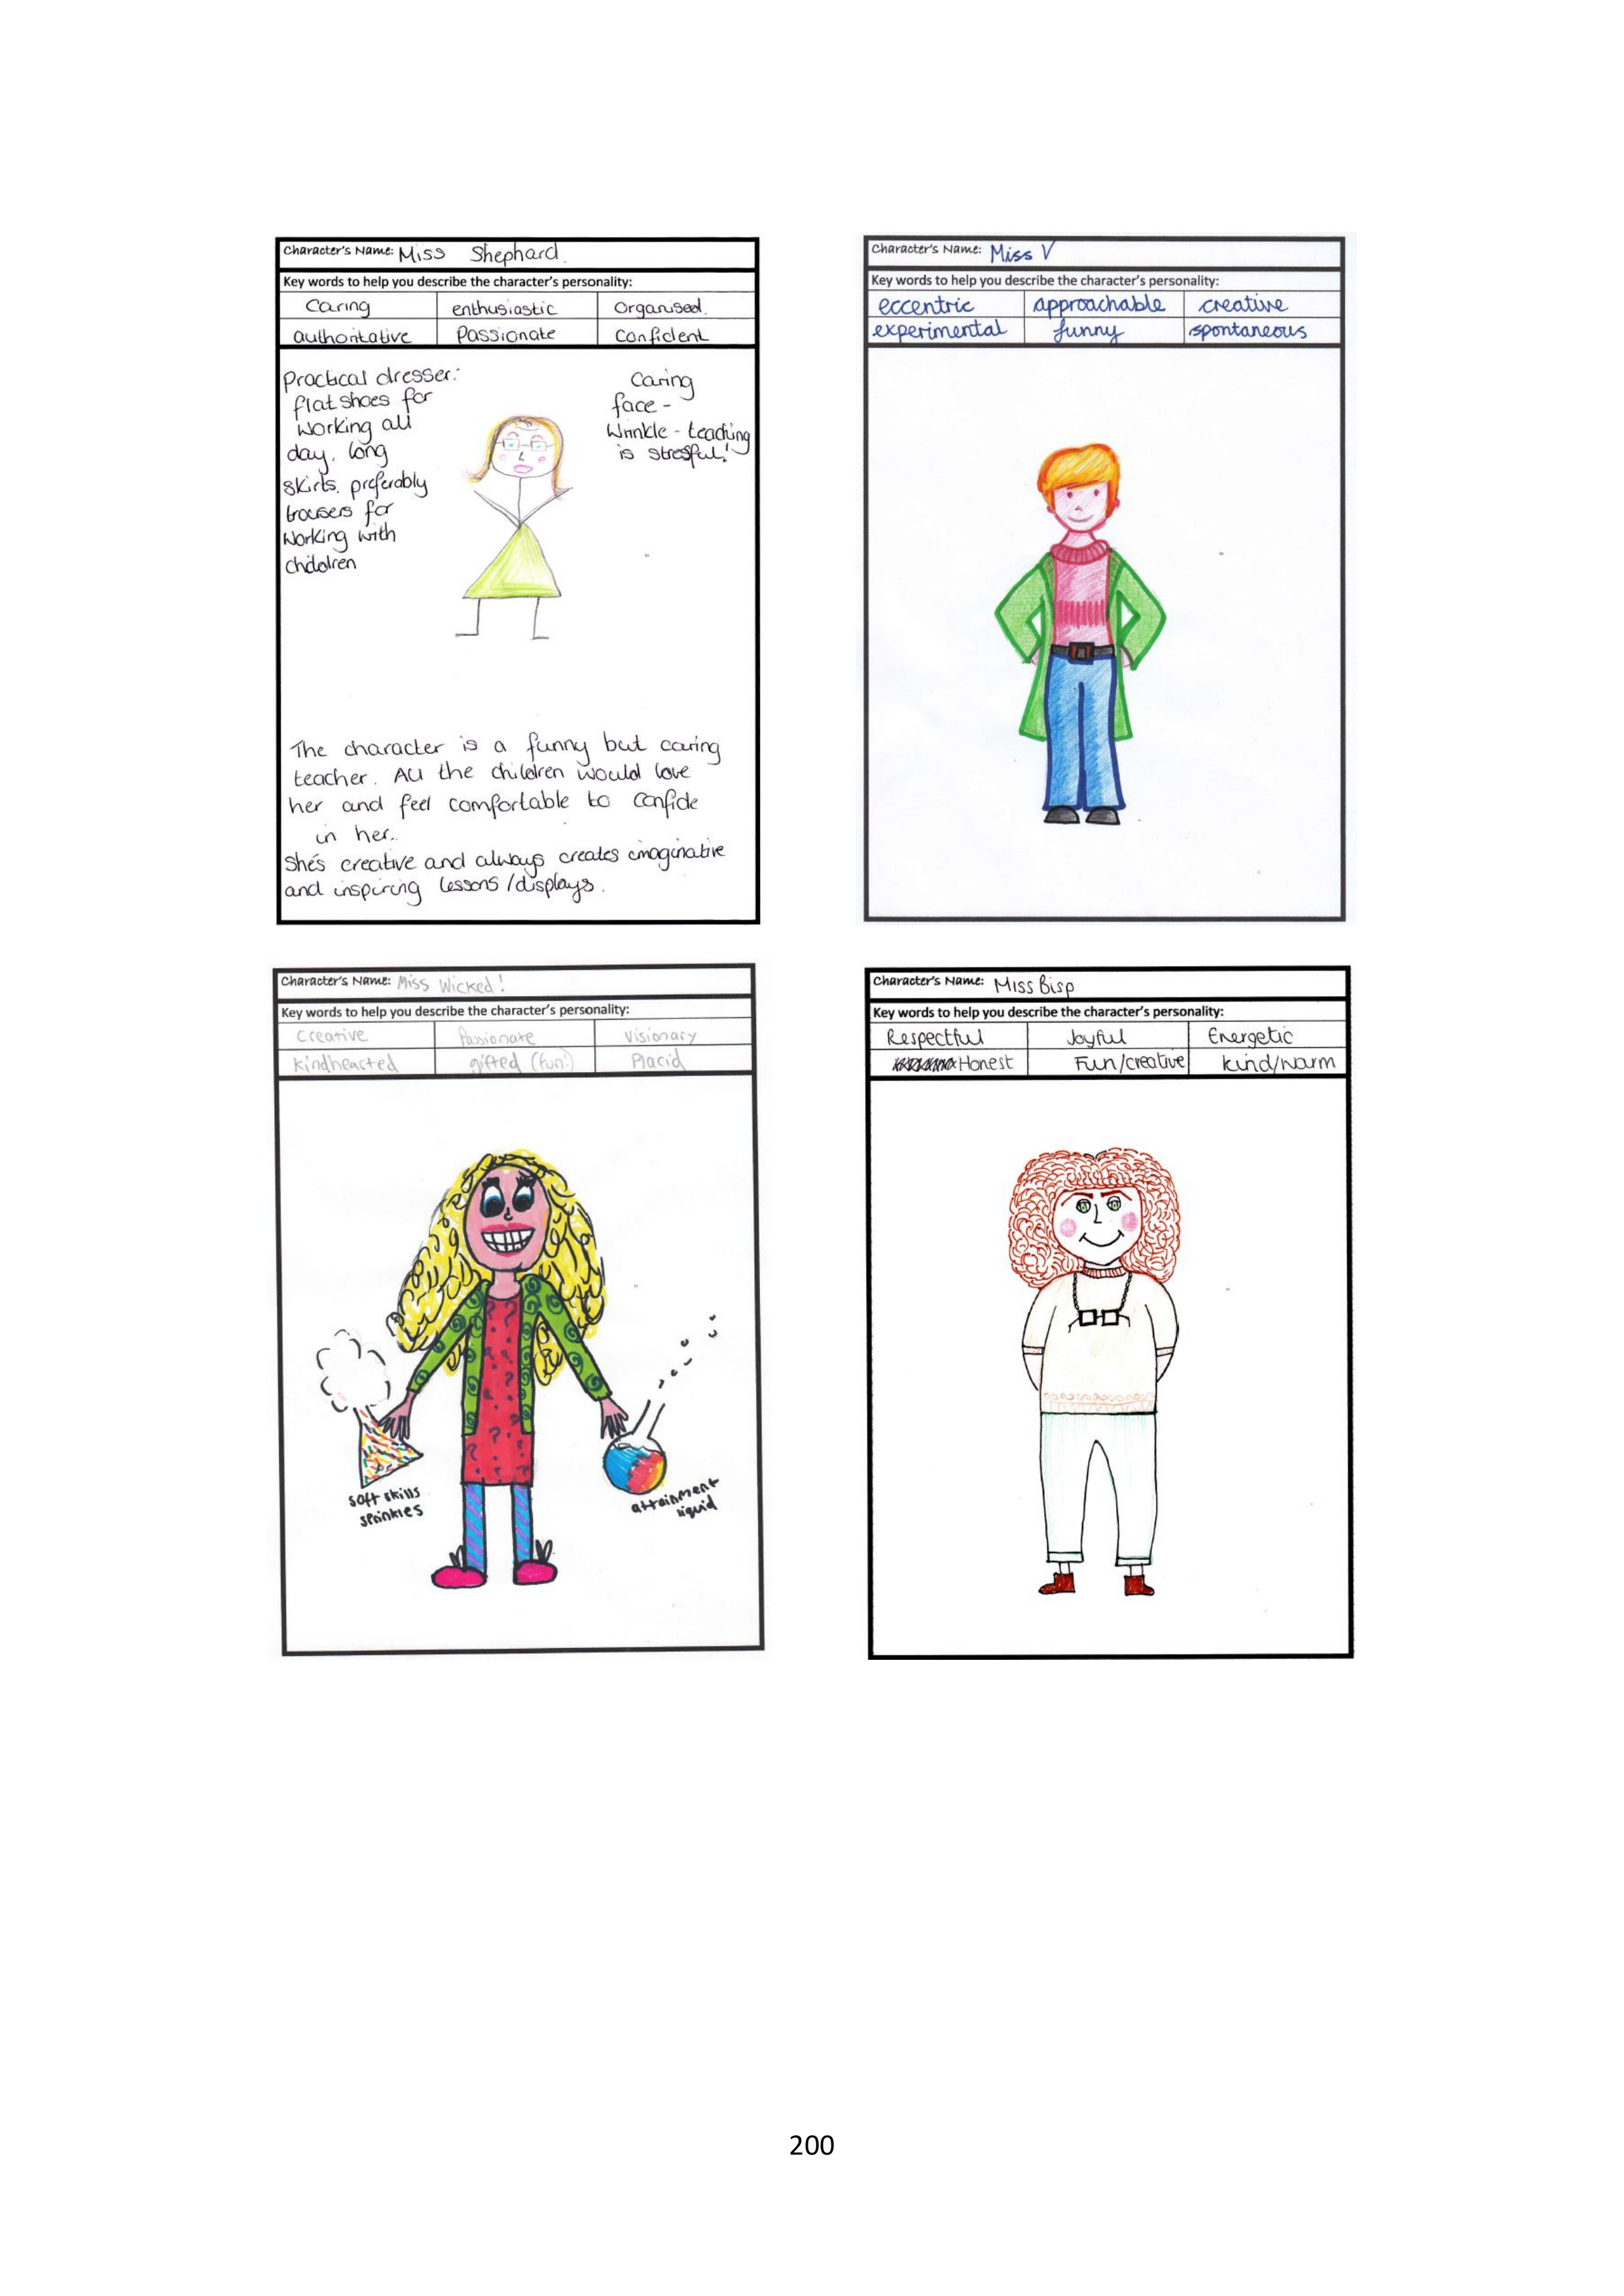 Character's Name: Miss Shephard.
Key words to help you describe the character's personality:
Caring enthusiastic Organised.
authoritative Passionate Confident
Practical dresser:
flat shoes for
working all
day, long
skirts, preferably
trousers for
working with
children
Caring
face -
Wrinkle - teaching
is stressful!
The character is a funny but caring
teacher. All the children would love
her and feel comfortable to confide
in her.
She's creative and always creates imaginative
and inspiring lessons/displays.
Character's Name: Miss V
Key words to help you describe the character's personality:
eccentric approachable creative
experimental funny spontaneous
Character's Name: Miss Wicked!
Key words to help you describe the character's personality:
Creative Passionate Visionary
Kindhearted gifted (fun!) Placid
soft skills
sprinkles
attainment
liquid
Character's Name: Miss Bisp
Key words to help you describe the character's personality:
Respectful Joyful Energetic
Honest Fun/creative kind/warm
200